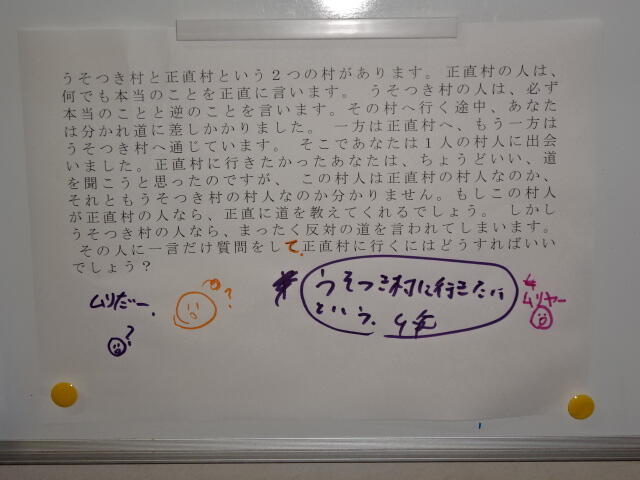 うそつき村と正直村という2つの村があります。 正直村の人は、
何でも本当のことを正直に言います。 うそつき村の人は、必ず
本当のことと逆のことを言います。その村へ行く途中、あなた
は分かれ道に差しかかりました。 一方は正直村へ、もう一方は
うそつき村へ通じています。 そこであなたは1人の村人に出会
いました。正直村に行きたかったあなたは、ちょうどいい、道
を聞こうと思ったのですが、 この村人は正直村の村人なのか、
それともうそつき村の村人なのか分かりません。もしこの村人
が正直村の人なら、正直に道を教えてくれるでしょう。 しかし
うそつき村の人なら、まったく反対の道を言われてしまいます。
その人に一言だけ質問をして、正直村に行くにはどうすればいい
でしょう?
ムリだー、
?
?
うそつき村に行きたい
という。 4年
ムリヤー